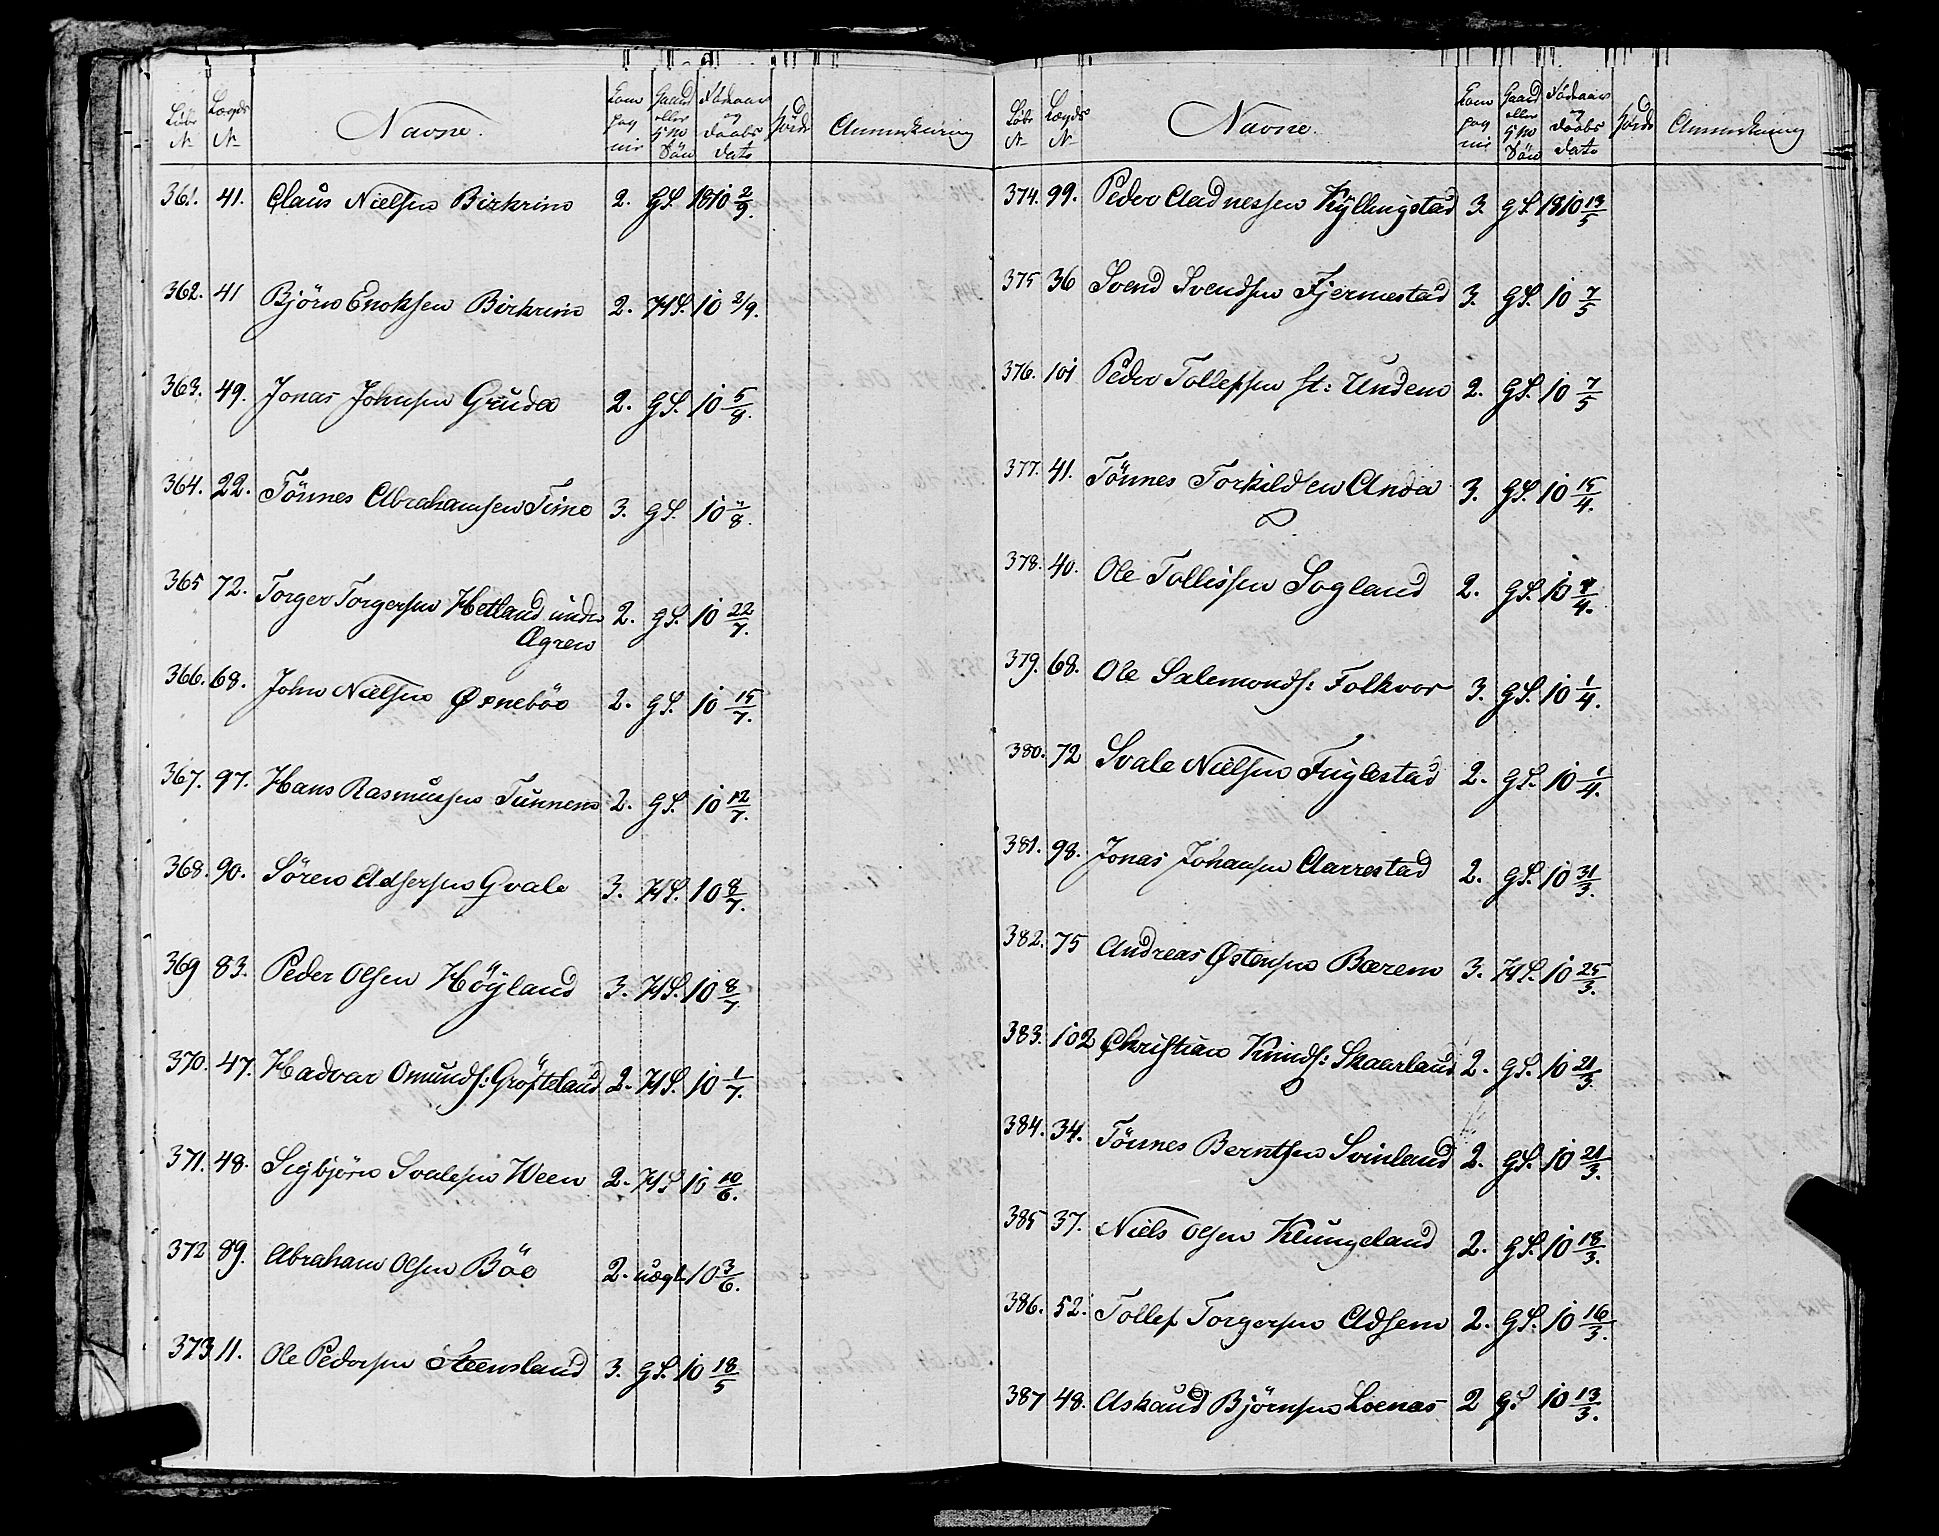 Løbe N- Lægds N- Navne. Kompagnie Gaard eller HM Søn Fødeaar og Daabs Dato Høide Anmerkning
361. 41. Claus Nielsen Birkrim 2. GS. 1810 2/9.
362. 41 Bjørn Enoksen Birkrim 2. HS. 10 2/9.
363. 49. Jonas Johnsen Gruda 2. GS. 10 5/8.
364. 22. Tønnes Abrahamsen Time 3. GS. 10 /8.
365 72. Torger Torgersen Hetland under
Ægren 2. GS. 10 22/7.
366. 68. John Nielsen Ørnebøe 2. GS. 10 15/7.
367. 97. Hans Rasmussen Tunnem 2. GS. 10 12/7.
368. 90. Søren Adsersen Qvale 3. HS. 10 8/7.
369 83. Peder Olsen Høyland 3. HS. 10 8/7.
370. 47. Hadvar Omunds: Grøfteland 2. HS. 10 1/7.
371. 48. Sigbjørn Svalesen Ween 2. HS 10 10/6.
372 89. Abraham Olsen Bøe 2. uægt. 10 3/6.
373 11. Ole Pedersen Steensland 3. GS. 10 18/5
Løbe N- Lægds N- Navne. Kompagnie Gaard eller HM Søn Fødeaar og Daabs Dato Høide Anmerkning
374. 99. Peder Aadnessen Kyllingstad 3. GS. 1810 13/5
375 36 Svend Svendsen Fjermestad 3. GS. 10 7/5
376. 101 Peder Tollefsen st: Undem 2. GS. 10 7/5
377. 41. Tønnes Torkildsen Anda 3. GS. 10 15/4.
378. 40. Ole Tollissen Sogland 2. GS. 10 /4.
379. 68. Ole Salemonds: Folkvor 3. GS. 10 1/4.
380. 72 Svale Nielsen Fuglestad 2. GS. 10 1/4.
381. 98. Jonas Johansen Aarrestad 2. GS. 10 31/3.
382. 75 Andreas Østensen Bærem 3. HS. 10 25/3.
383. 102 Christian Knuds: Skaarland 2. GS. 10 21/3.
384. 34. Tønnes Berntsen Svinland 2. GS. 10 21/3.
385 37. Niels Olsen Klungeland 2. GS. 10 18/3.
386. 52. Tollef Torgersen Adsem 2. GS. 10 16/3.
387 48. Askaud Bjørnsen Loenes 2 GS 10 13/3.